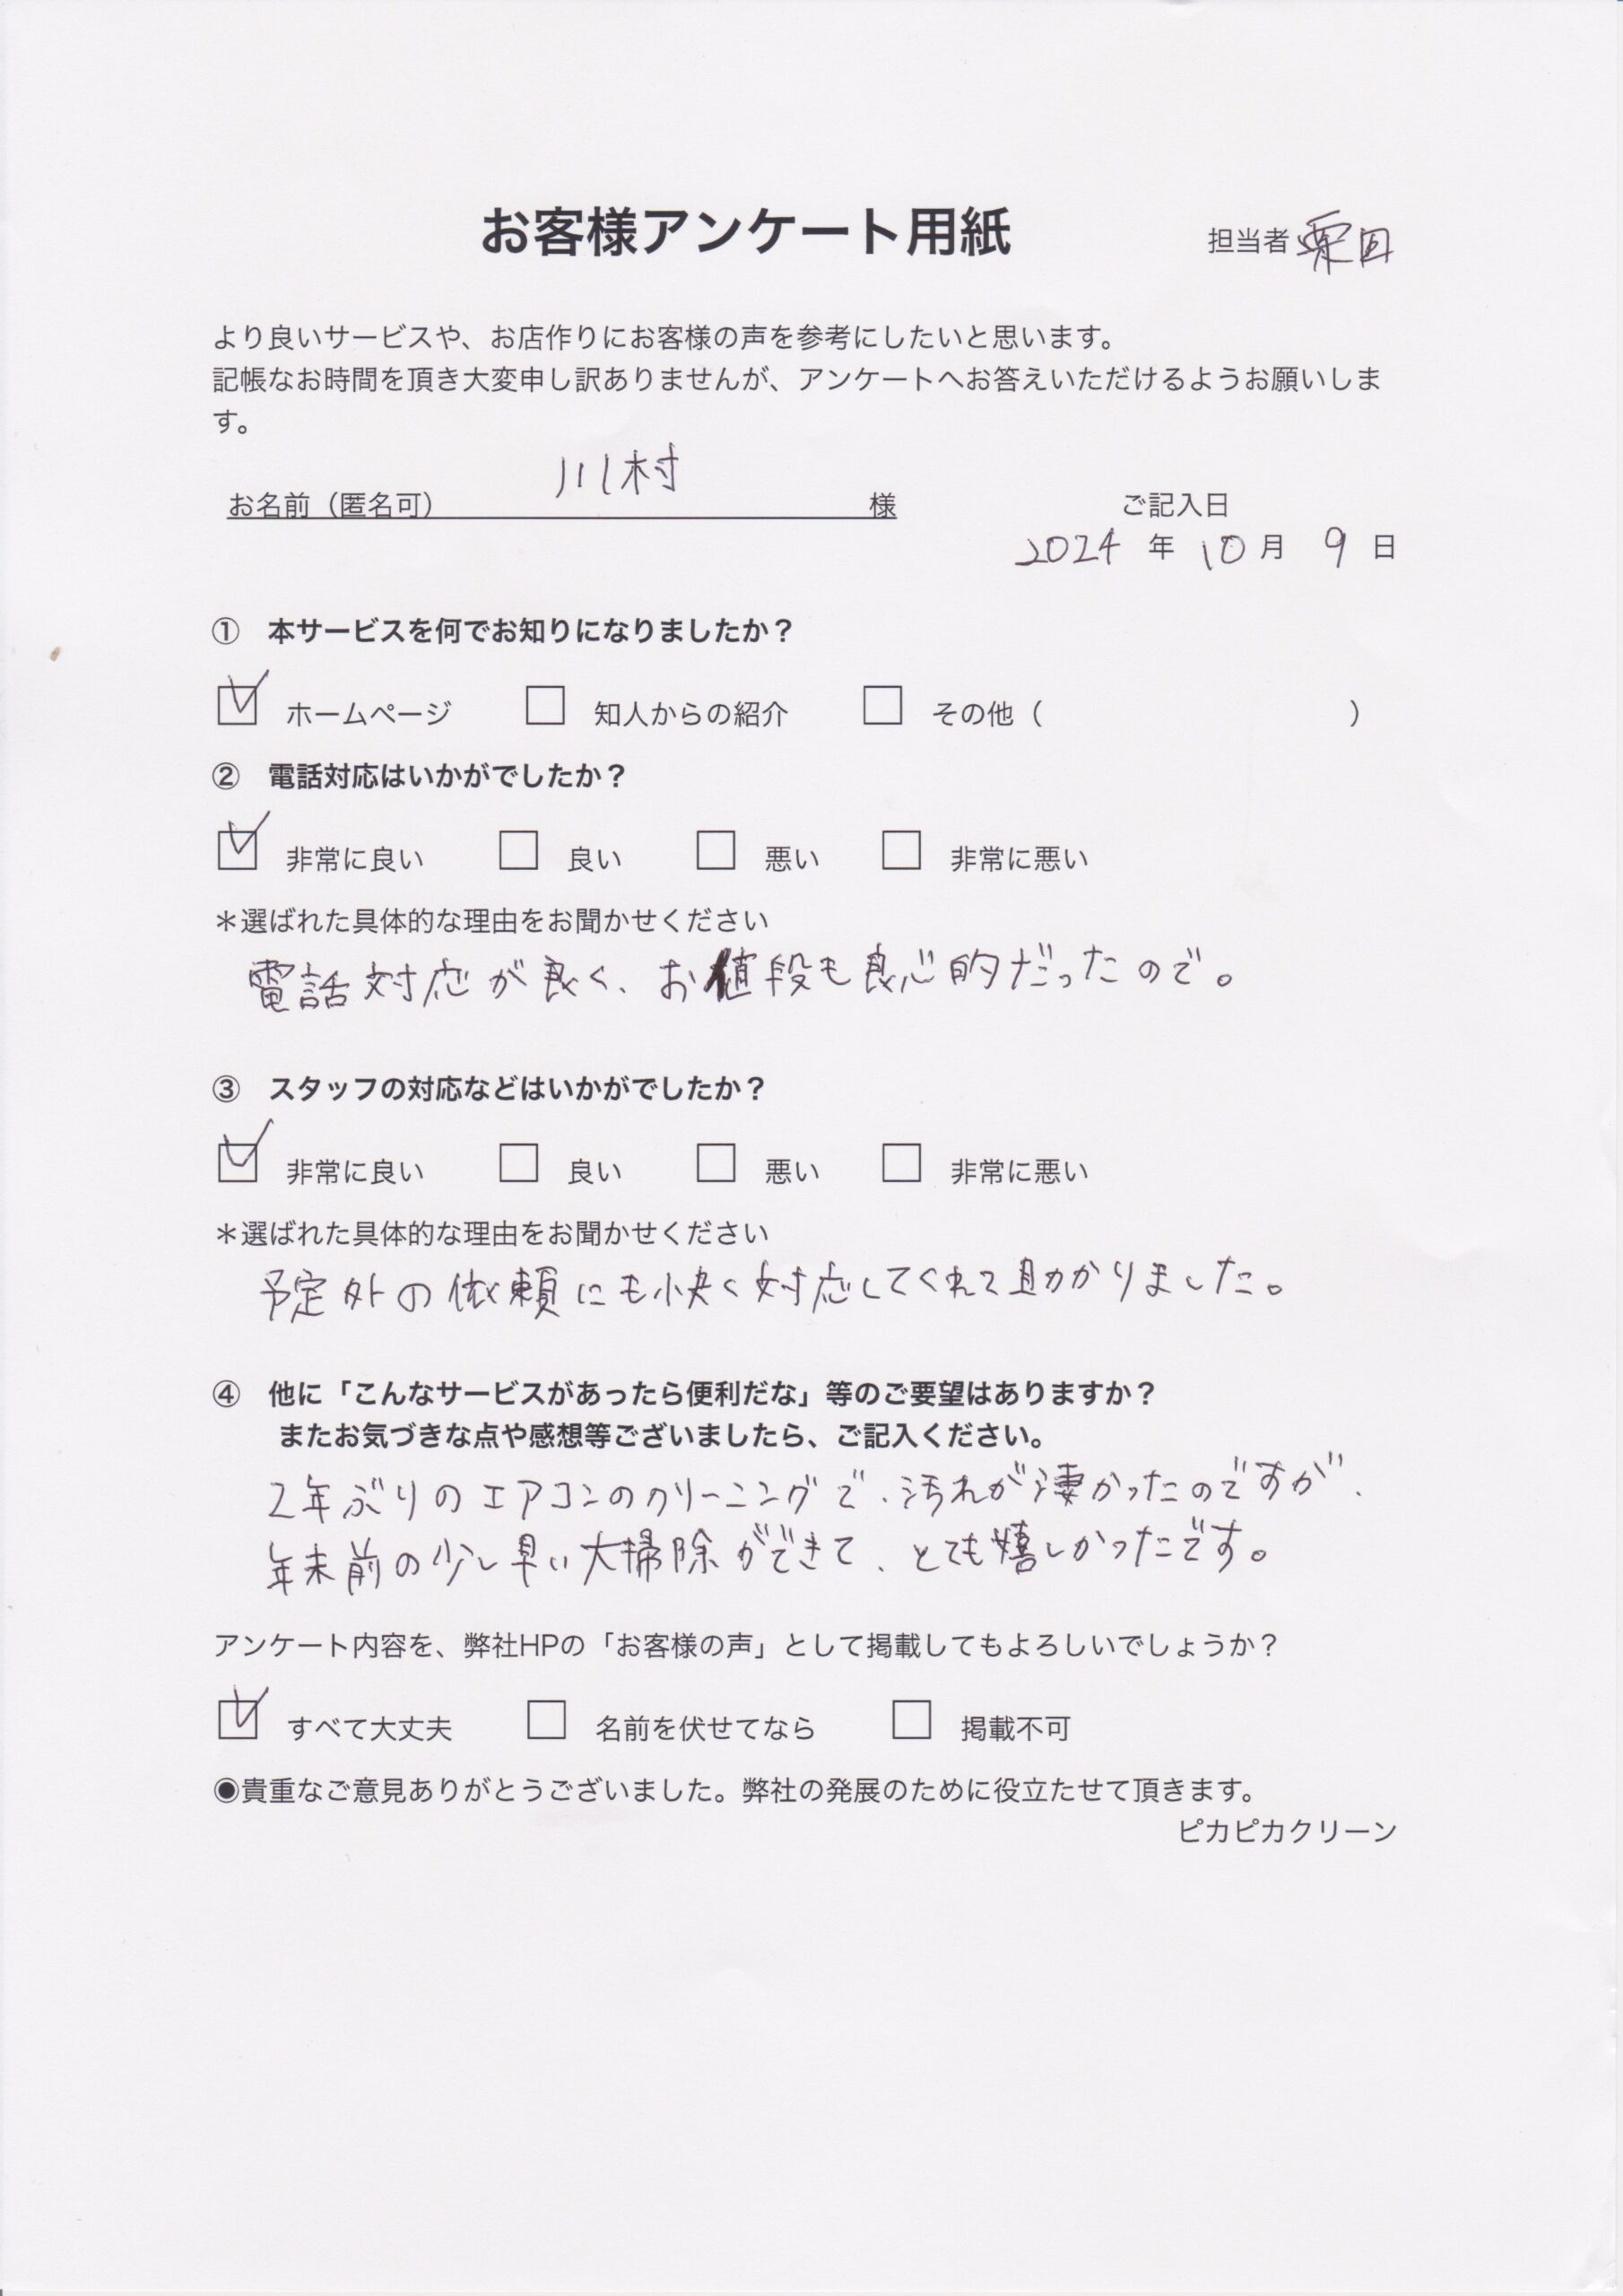 お客様アンケート用紙
担当者 栗田
より良いサービスや、お店作りにお客様の声を参考にしたいと思います。
記帳なお時間を頂き大変申し訳ありませんが、アンケートへお答えいただけるようお願いしま
す。
お名前（匿名可） 川村 様
ご記入日
2024 年 10 月 9 日
① 本サービスを何でお知りになりましたか？
☑ ホームページ □ 知人からの紹介 □ その他（ ）
② 電話対応はいかがでしたか？
☑ 非常に良い □ 良い □ 悪い □ 非常に悪い
＊選ばれた具体的な理由をお聞かせください
電話対応が良く、お値段も良心的だったので。
③ スタッフの対応などはいかがでしたか？
☑ 非常に良い □ 良い □ 悪い □ 非常に悪い
＊選ばれた具体的な理由をお聞かせください
予定外の依頼にも快く対応してくれて助かりました。
④ 他に「こんなサービスがあったら便利だな」等のご要望はありますか？
またお気づきな点や感想等ございましたら、ご記入ください。
2年ぶりのエアコンのクリーニングで、汚れが凄かったのですが、
年末前の少し早い大掃除ができて、とても嬉しかったです。
アンケート内容を、弊社HPの「お客様の声」として掲載してもよろしいでしょうか？
☑ すべて大丈夫 □ 名前を伏せてなら □ 掲載不可
◉貴重なご意見ありがとうございました。弊社の発展のために役立たせて頂きます。
ピカピカクリーン